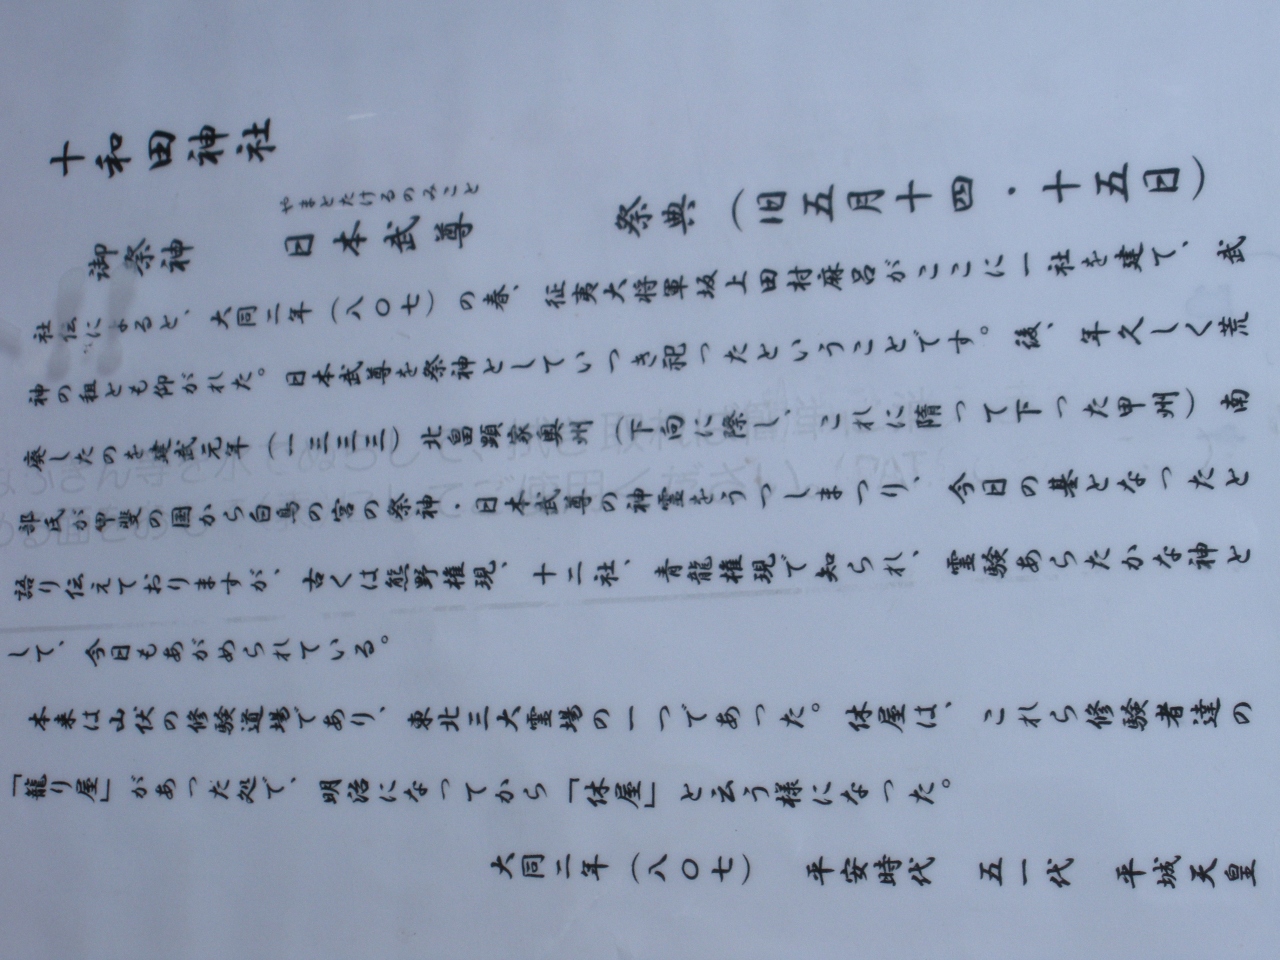 十和田神社
御祭神　日本武尊　祭典（旧五月十四・十五日）
やまとたけるのみこと
社伝によると、大同二年（八〇七）の春、征夷大将軍坂上田村麻呂がここに一社を建て、武
神の祖とも仰がれた。日本武尊を祭神としていつき祀ったということです。後、年久しく荒
廃したのを建武元年（一三三三）北畠顕家奥州（下向に際し、これに隋って下った甲州）南
部氏が甲斐の国から白鳥の宮の祭神・日本武尊の神霊をうつしまつり、今日の基となったと
語り伝えておりますが、古くは熊野権現、十二社、青龍権現で知られ、霊験あらたかな神と
して、今日もあがめられている。
本来は山伏の修験道場であり、東北三大霊場の一つであった。休屋は、これら修験者達の
「籠り屋」があった処で、明治になってから「休屋」と云う様になった。
大同二年（八〇七）　平安時代　五一代　平城天皇